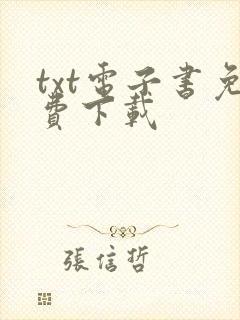 txt電子書免
費下載
張信哲